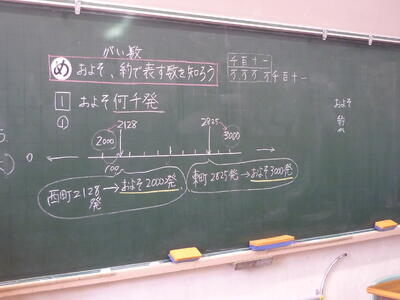 がい数
め およそ、約で表す数を知ろう
千百十一
万万万万千百十一
1 およそ何千発
①
2128
2825
2000
3000
0
100
西町2128発 → およそ2000発
東町2825発 → およそ3000発
およそ
約